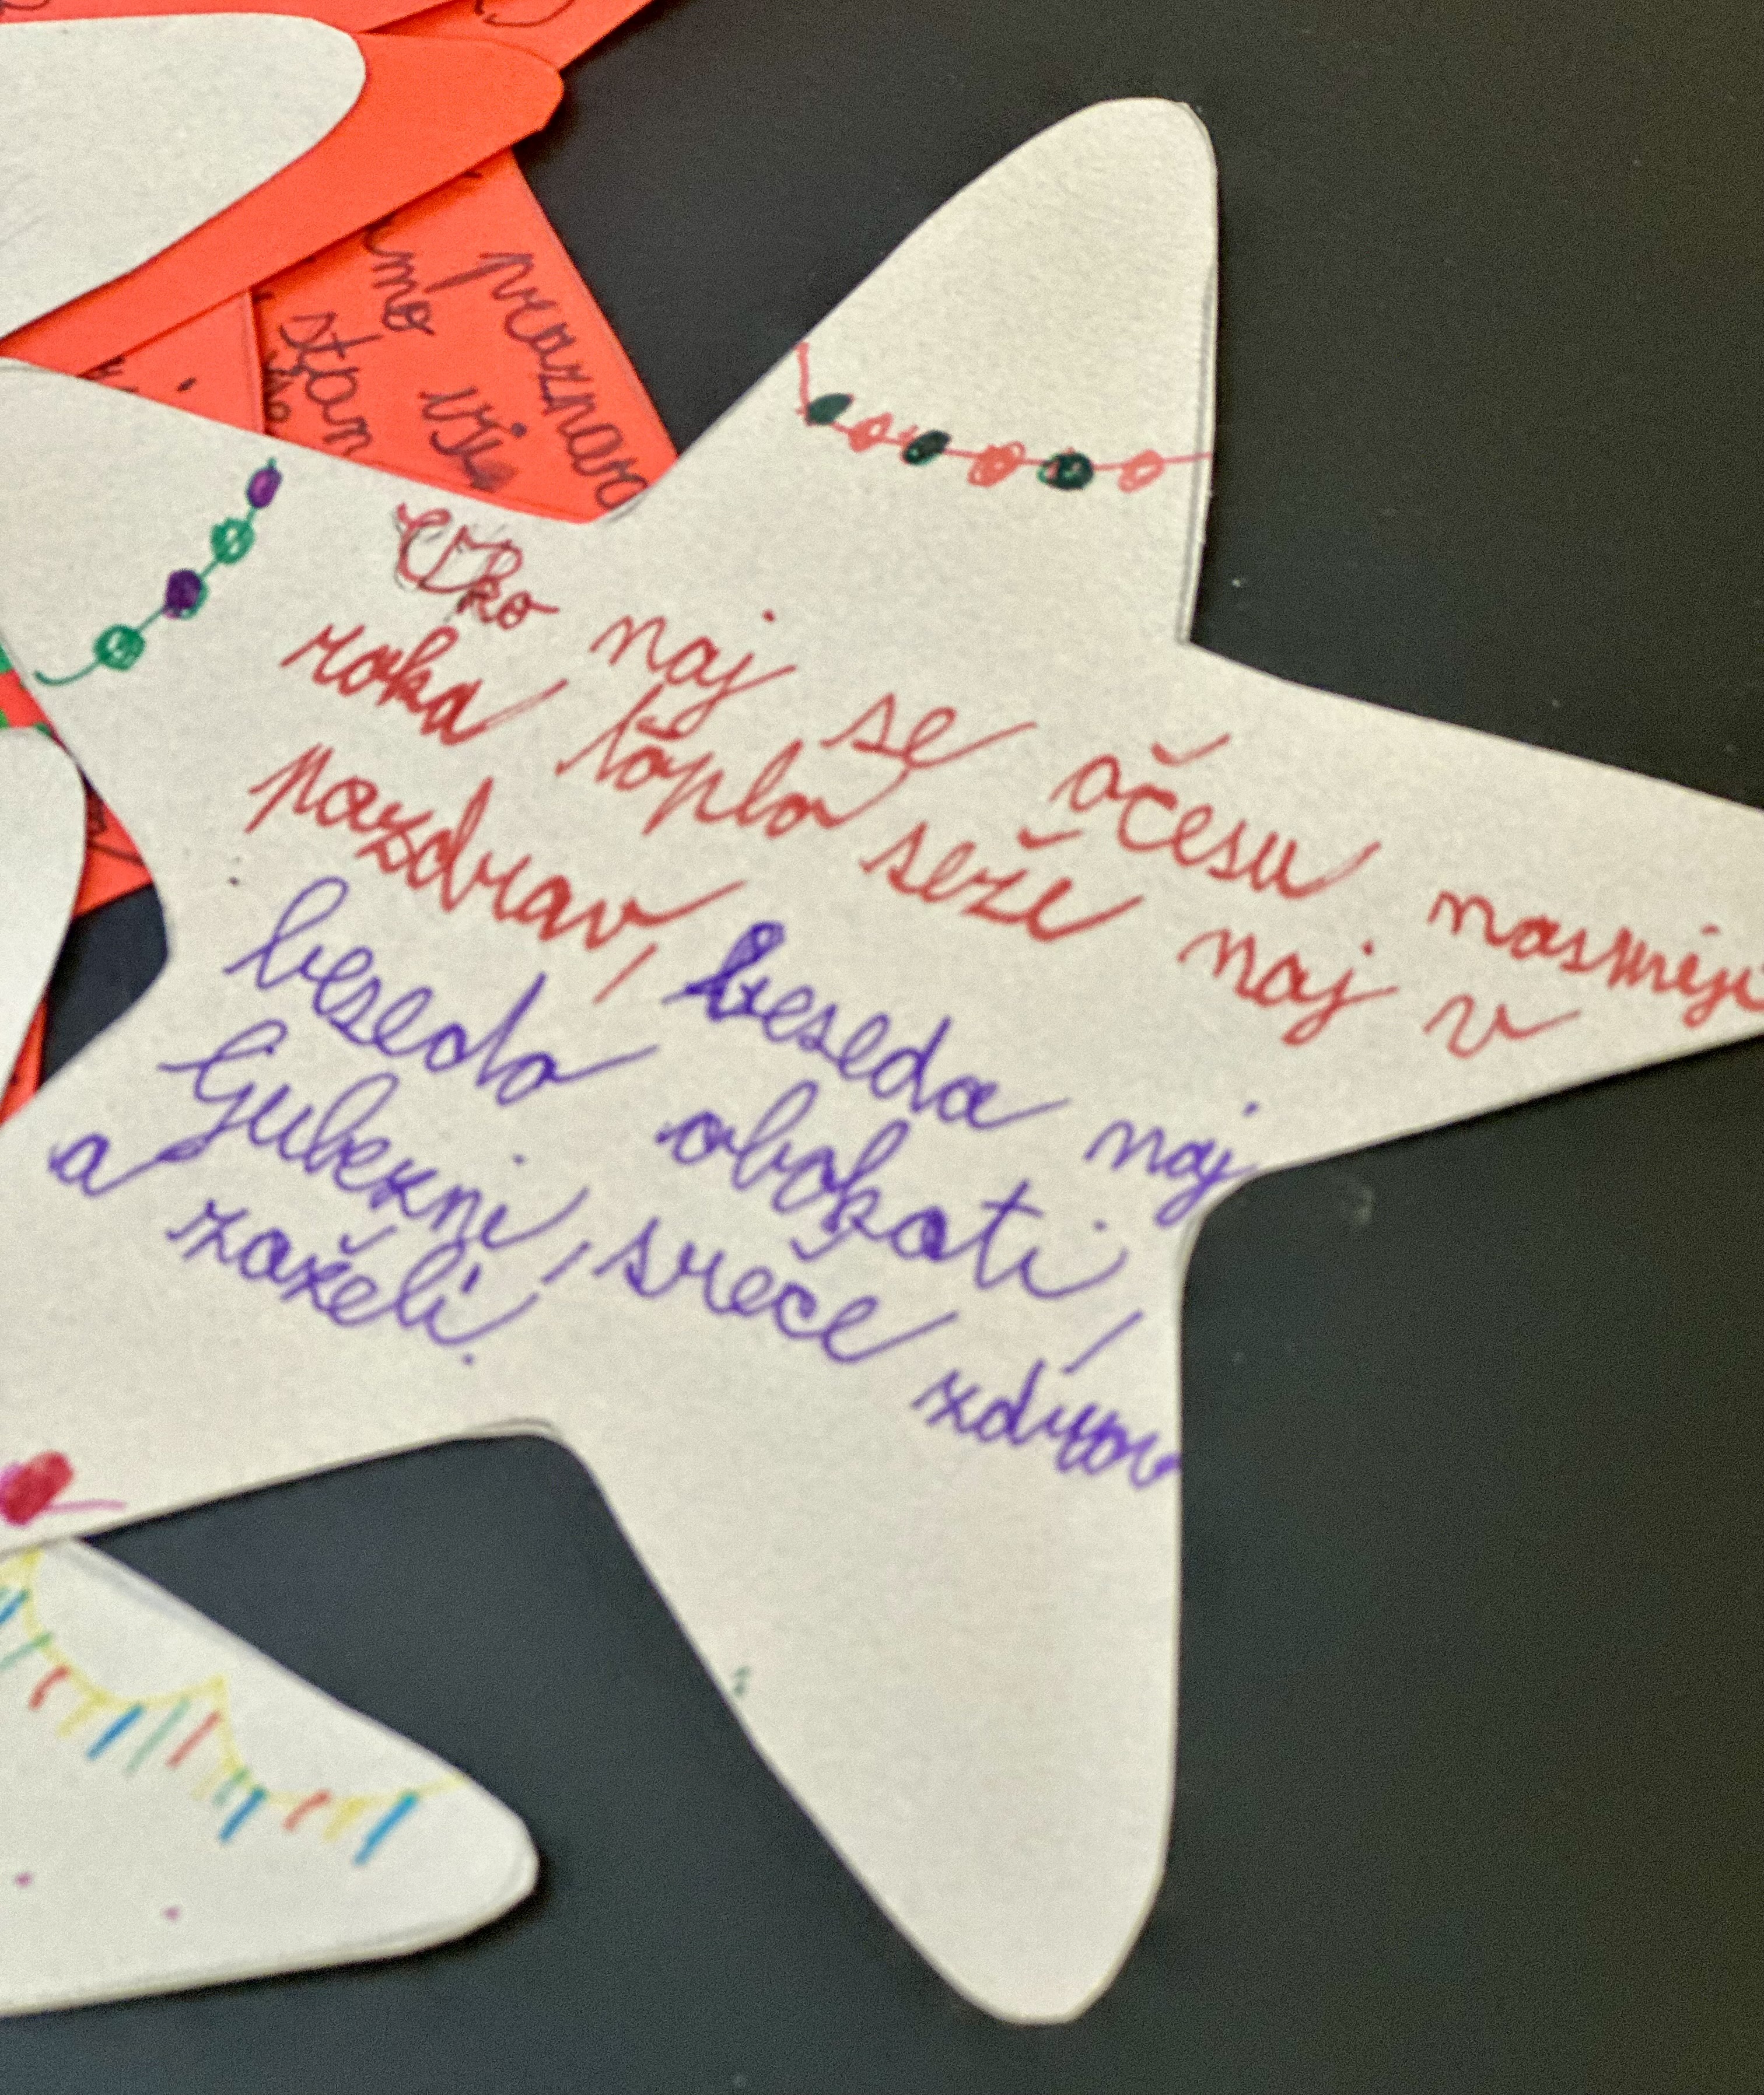 praznav
mo vje
stan
Oko naj se očesu nasmeji
roka toplo seže naj v
pozdrav, beseda naj
besedo obogati,
ljubezni, sreče zdrav
a zaželi.